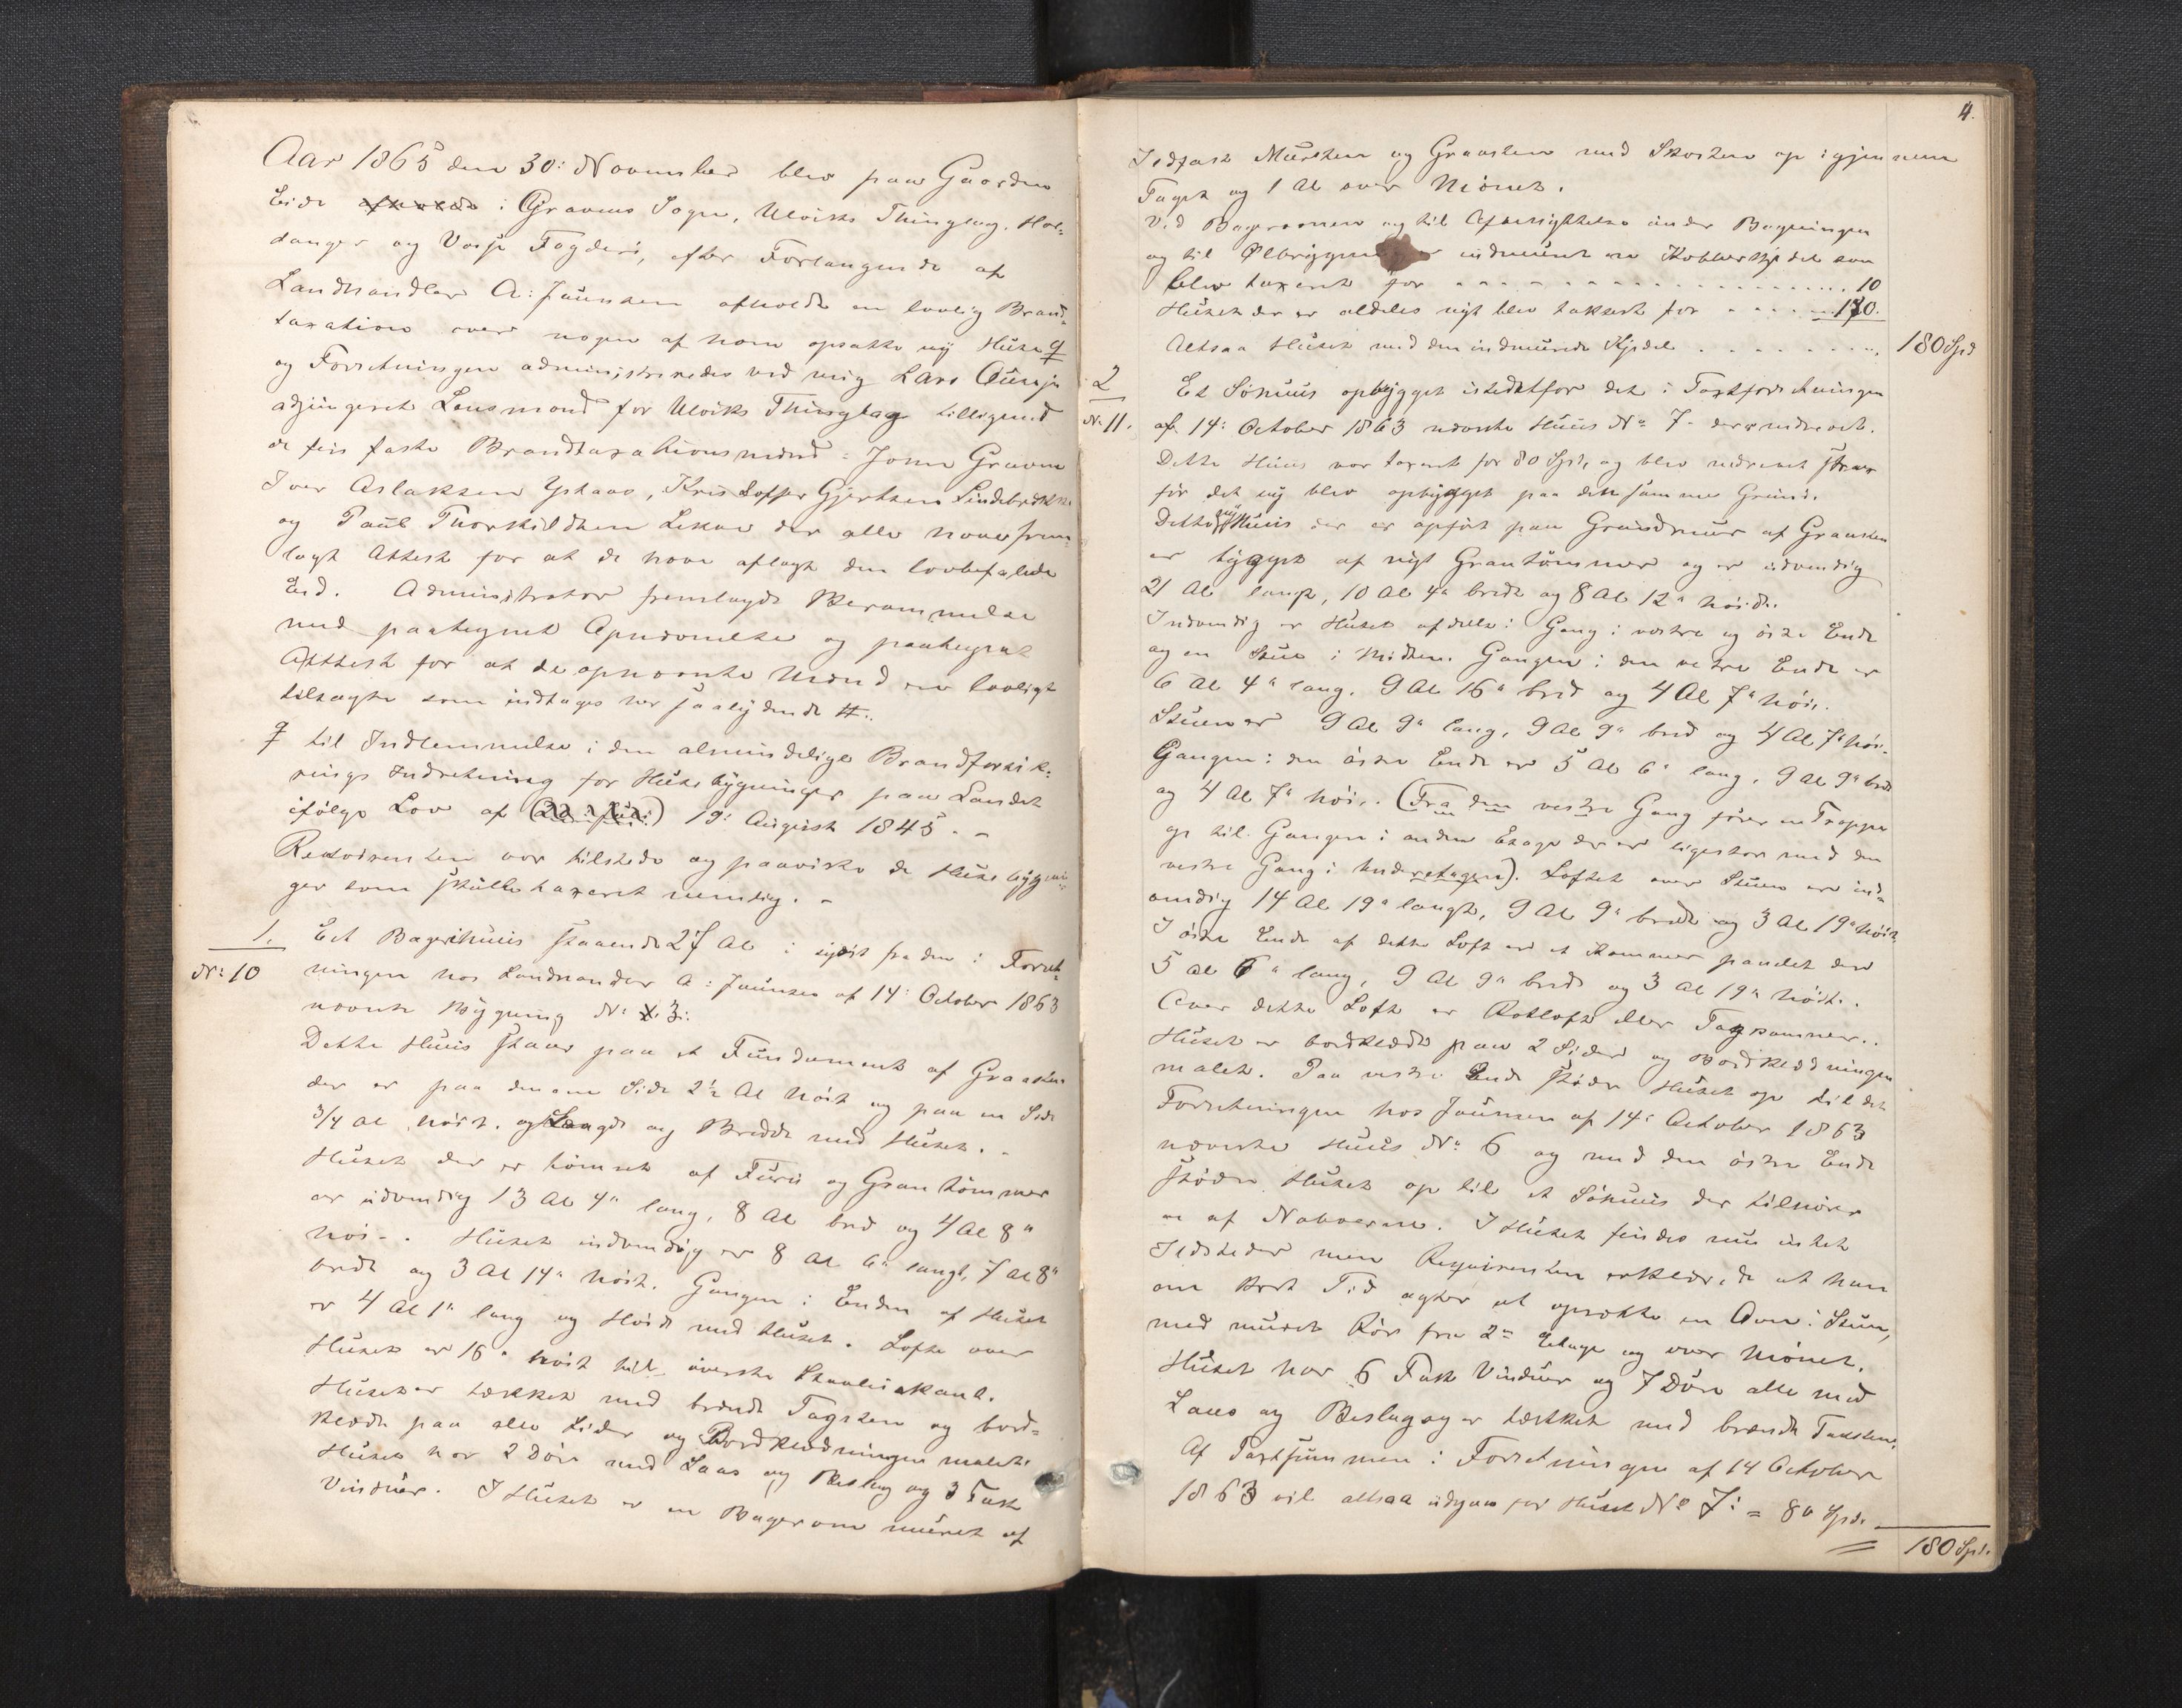 Aar 1865 den 30: November blev paa Gaarden
Eide afholdt i Gravens Sogn, Ulviks Thinglag, Har-
danger og Voss Fogderi, efter Forlangende af
Landhandler A: Jaunsen afholdt en lovlig Brand-
taxation over nogen af ham opsatte ny Huse φ
og Forretningen administreredes ved mig Lars
adjungeret Lensmand for Ulviks Thinglag tilligemed
de fire faste Brandtaxationsmænd: John Graven
Iver Aslaksen Ystaas, Kristoffer Gjertsen Lindebrekke
og Paul Thorkildsen Lekve der alle have frem-
lagt Attest for at de have aflagt den lovbefalede
Eed. Administrator fremlagde Berammelse
med paategnet Opnævnelse og paategnet
Attest for at de opnævnte Mænd ere lovligt
tilsagte som indtages her saalydende #.
φ til Indlemmelse i den almindelige Brandforsik-
rings Indretning for Huusbygninger paa Landet
ifølge Lov af 19: August 1845. -
Rekvirenten var tilstede og paaviste de Huusbygnin-
ger som skulle taxeret nemlig. -
1.
N: 10
Et Bagerihuus staaende 27 Al i syost fra den i Forret-
ningen hos Landhandler A: Jaunsen af 14: October 1863
nævnte Bygning N: 3:
Dette Huus staar paa et Fundament af Graasten
der er paa den ene Side 2½ Al høit og paa en Side
3/4 al høit. og Længde og Bredde med Huset. -
Huset der er tømret af Furu og Gran tømmer
er udvendig 13 Al 4" lang, 8 Al bred og 4 Al 8"
høi -. Huset indvendig er 8 al 6" langt, 7 al 8"
bredt og 3 Al 14" høit. Gangen i Enden af Huset
er 4 Al 1" lang og Høide med Huset. Loftet over
Huset er 16" høit til øverste Stavleiekant.
Huset er tækket med brændt Tagsten og bord-
klædt paa alle Sider og Bordklædningen malet.
Huset har 2 Døre med Laas og Beslag og 3 Fask
Vinduer. I Huset er en Bagerovn muret af
4.
Ildfast Mursten og Graasten med Skorsten op igjennem
Taget og 1 Al over Mønet.
Ved Bagerovnen og til Afbenyttelse under Bagningen
og til Ølbrygning er indmuret en Kobberkjedel som
blev taxeret for - - - - - - - - - - 10
Huset der er aldeles nyt blev taksert for - - - - 170.
Altsaa Huset med den indmurede Kjedel - - - - - 180 Spd
2
N: 11.
Et Søhuus opbygget istedetfor det i Taxtforretningen
af 14: October 1863 nævnte Huus No 7 - der er nedrevet.
Dette Huus var taxert for 80 Spd, og blev nedrevet strax
før det ny blev opbygget paa den samme Grund.
Dette ny Huus der er opført paa Grundmur af Graasten
er bygget af nyt Grantømmer og er udvendig
21 Al langt, 10 Al 4" bredt og 8 Al 12" høidt.
Indvendig er Huset afdelt i Gang i vestre og østre Ende
og en Stue i Midten. Gangen i den vestre Ende er
6 Al 4" lang. 9 Al 16" bred og 4 Al 7" høi.
Stuen er 9 Al 9" lang, 9 Al 9" bred og 4 Al 7" høi.
Gangen i den østre Ende er 5 Al 6" lang, 9 Al 9" bred
og 4 Al 7" høi. (Fra den vestre Gang fører en Trappe
op til Gangen i anden Etage der er ligestor med den
vestre Gang i underetagen). Loftet over Stuen er ind-
vendig 14 Al 19" langt, 9 Al 9" bredt og 3 Al 19" høit.
I østre Ende af dette Loft er et Kammer pandet der
5 al 6" lang, 9 Al 9" bredt og 3 al 19" høit.
Over dette Loft er Rotloft eller Tagkammer..
Huset er bordklædt paa 2 Sider og Bordklædningen
malet. Paa vestre Ende støder Huset op til det
Forretningen hos Jaunsen af 14: October 1863
nævnte Huus No 6 og med den østre Ende
støder Huset op til et Søhuus der tilhører
en af Naboerne. I Huset findes nu intet
Ildsteder men Requirenten erklærede at han
om kort Tid agter at opsætte en Ovn i Stuen,
med muret Rør fra 2den Etage og over Mønet.
Huset har 6 Fask Vinduer og 7 Døre alle med
Laas og Beslag og er tækket med brændt Taksten.
Af Taxtsummen i Forretningen af 14 October
1863 vil altsaa udgaa for Huset No 7: = 80 Spd.
180 Spd.